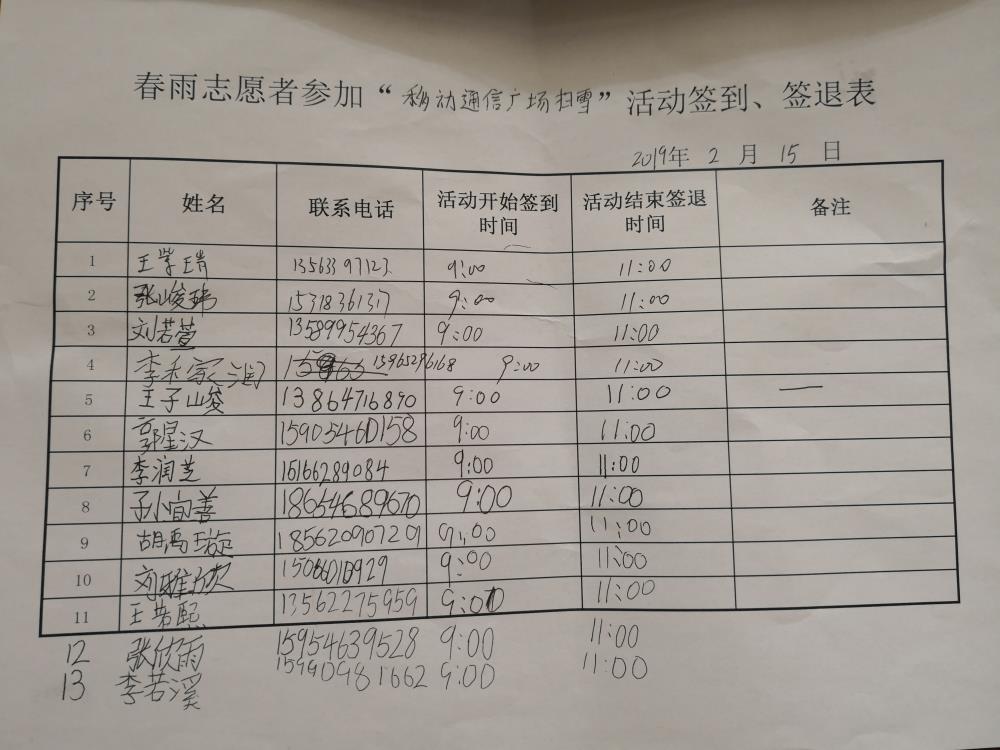 春雨志愿者参加“移动通信广场扫雪”活动签到、签退表
2019年 2 月 15 日
序号 姓名 联系电话 活动开始签到时间 活动结束签退时间 备注
1 王紫琦 9:00 11:00
2 张峻玮 15318361317 9:00 11:00
3 刘若萱 13589954367 9:00 11:00
4 李禾家润 15965296168 9:00 11:00
5 王子峻 13864716890 9:00 11:00 —
6 郭星汉 15905460158 9:00 11:00
7 李润芝 15166289084 9:00 11:00
8 孙宜善 18654689670 9:00 11:00
9 胡禹璇 18562090729 9:00 11:00
10 刘雅欣 9:00 11:00
11 王若熙 13562275959 9:00 11:00
12 张欣雨 15954639528 9:00 11:00
13 李若溪 15990981662 9:00 11:00